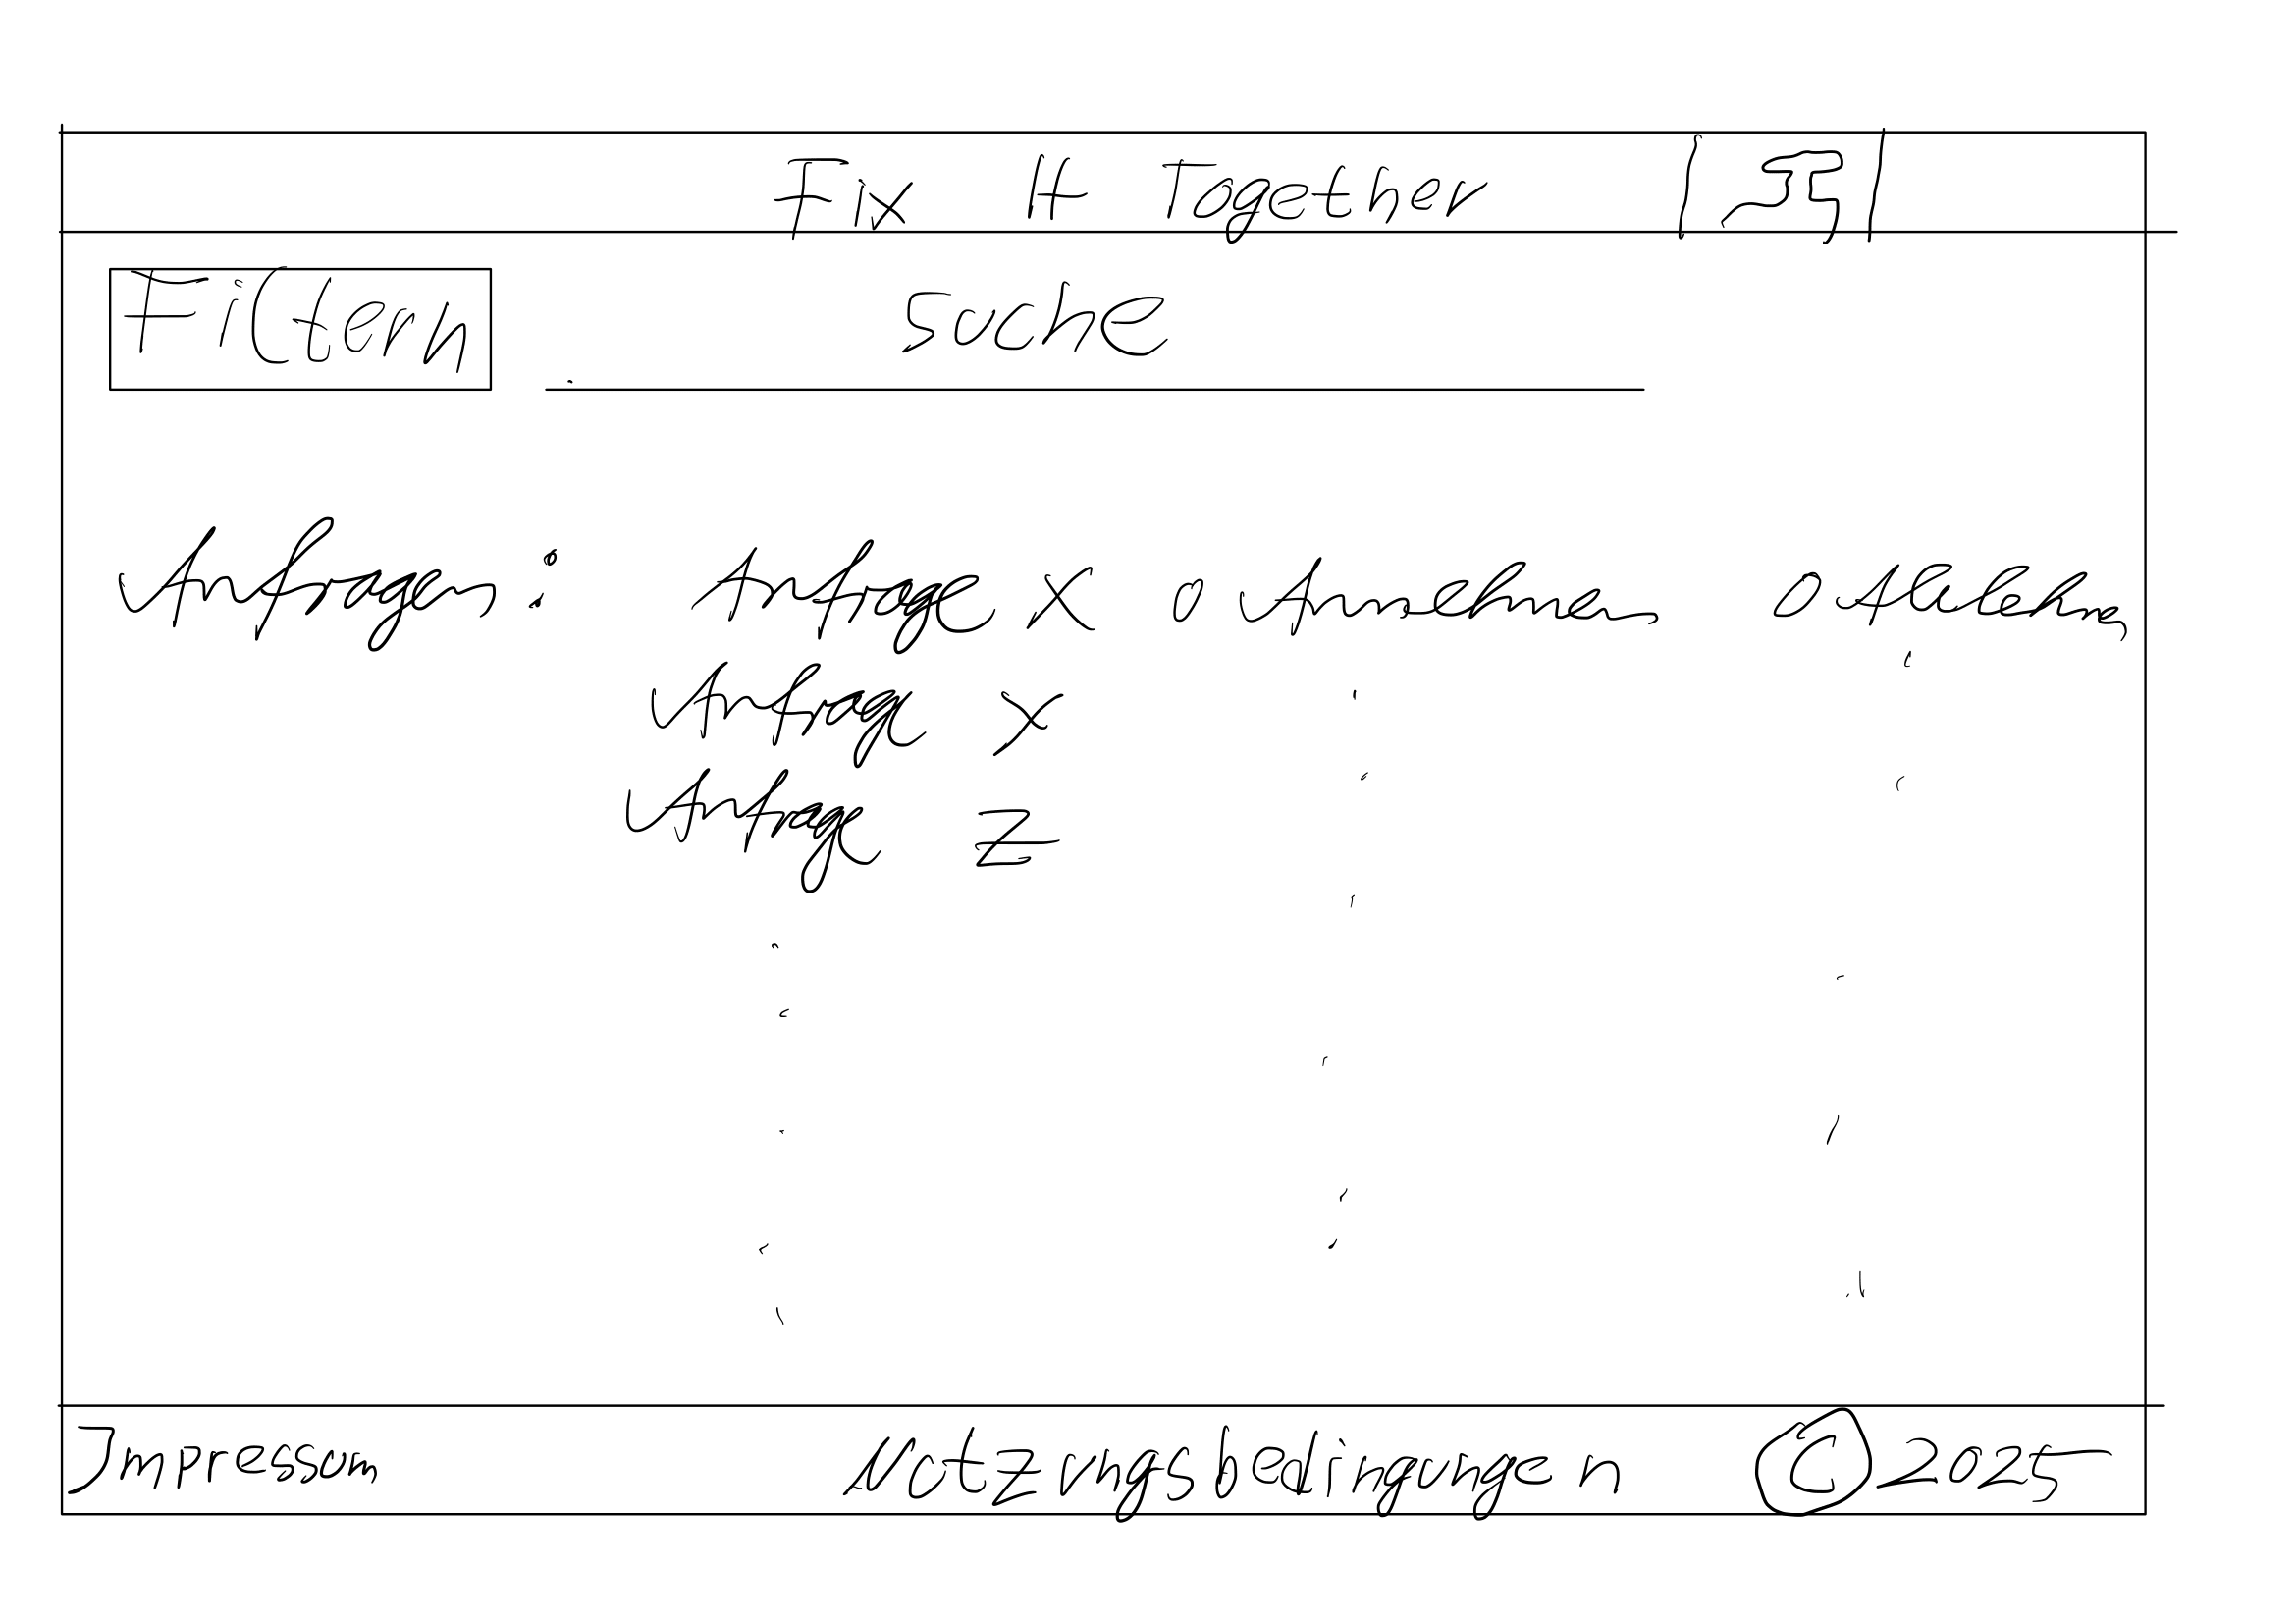 Fix It Together
Filtern suche
Anfragen: Anfrage X o Annehmen o Ablehnen
Anfrage X
Anfrage Z
Impressum Nutzungsbedingungen © 2025